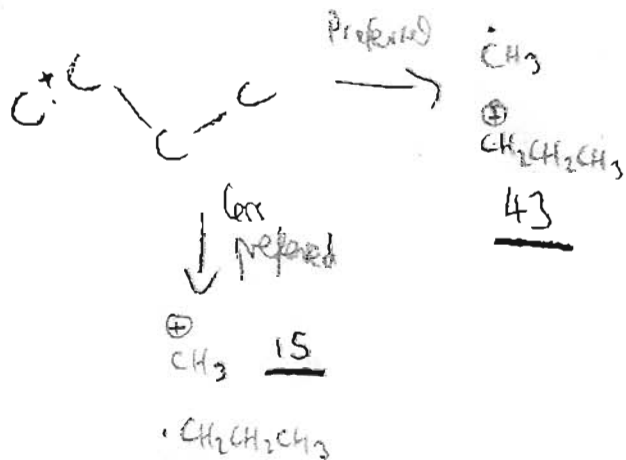 Preferred
ĊH3
C+. C C C
⊕
CH2CH2CH3
43
less
preferred
⊕
CH3 15
· CH2CH2CH3